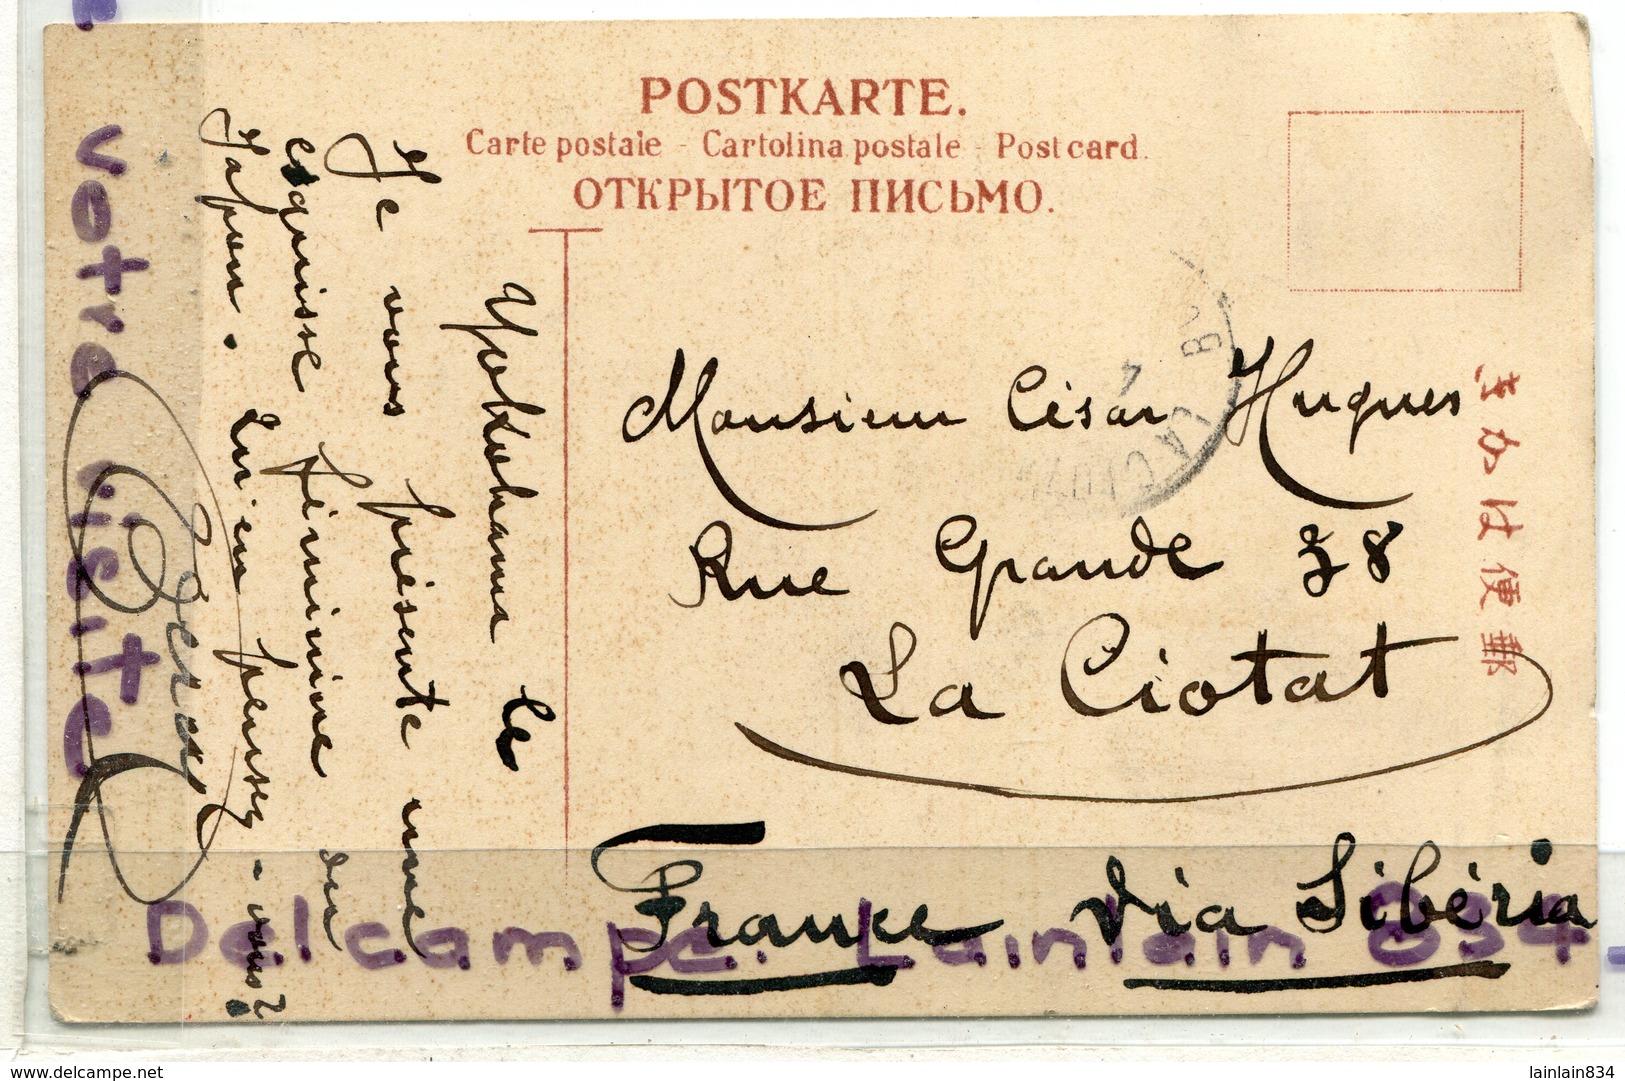 POSTKARTE.
Carte postale - Cartolina postale - Post card.
ОТКРЫТОЕ ПИСЬМО.
きかは便郵
Yokohama le
Je vous présente une
esquisse féminine du
Japon. Qu'en pensez-vous?
Monsieur César Hugues
Rue Grande 38
La Ciotat
France Via Sibéria
LA CIOTAT
Votre visite
Delcampe. Lainlain 834
www.delcampe.net
lainlain834